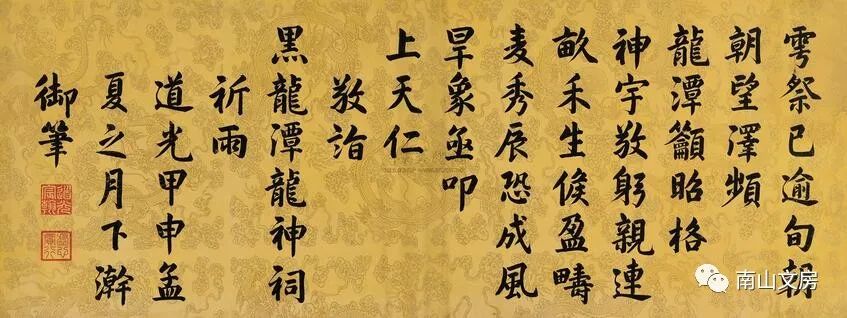 雩祭已逾旬朝
朝望澤頻
龍潭籲昭格
神宇敬躬親連
畝禾生候盈疇
麦秀辰恐成風
旱象亟叩
上天仁
敬詣
黑龍潭龍神祠
祈雨
道光甲申孟
夏之月下澣
御筆
道光宸翰
南山文房